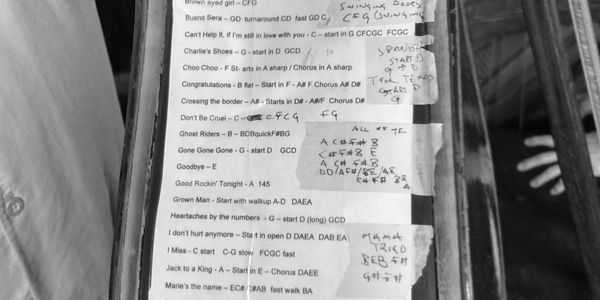 Brown eyed girl – CFG
Bueno Sera – GD turnaround CD fast GD C
Can't Help It, if I'm still in love with you - C – start in G CFCGC FCGC
Charlie's Shoes - G - start in D GCD
Choo Choo - F St- arts in A sharp / Chorus in A sharp
Congratulations - B flat – Start in F - A# F Chorus A# D#
Crossing the border – A# - Starts in D# - A#/F Chorus D#
Don't Be Cruel – C - CFCG FG
Ghost Riders – B – BDBquickF#BG
Gone Gone Gone - G - start D GCD
Goodbye – E
Good Rockin' Tonight - A 145
Grown Man - Start with walkup A-D DAEA
Heartaches by the numbers - G – start D (long) GCD
I don't hurt anymore – Start in open D DAEA DAB EA
I Miss - C start C-G slow FCGC fast
Jack to a King - A – Start in E – Chorus DAEE
Marie's the name – EC# C#AB fast walk BA
SWINGING DOORS
CFG (SWINGING
START D
G → D
T FOR TEXAS
START D
G
ALL OF ME
A C# F# B
C# F# B E
A C# F# B
MAMA
TRIED
BEB F#
G# F#